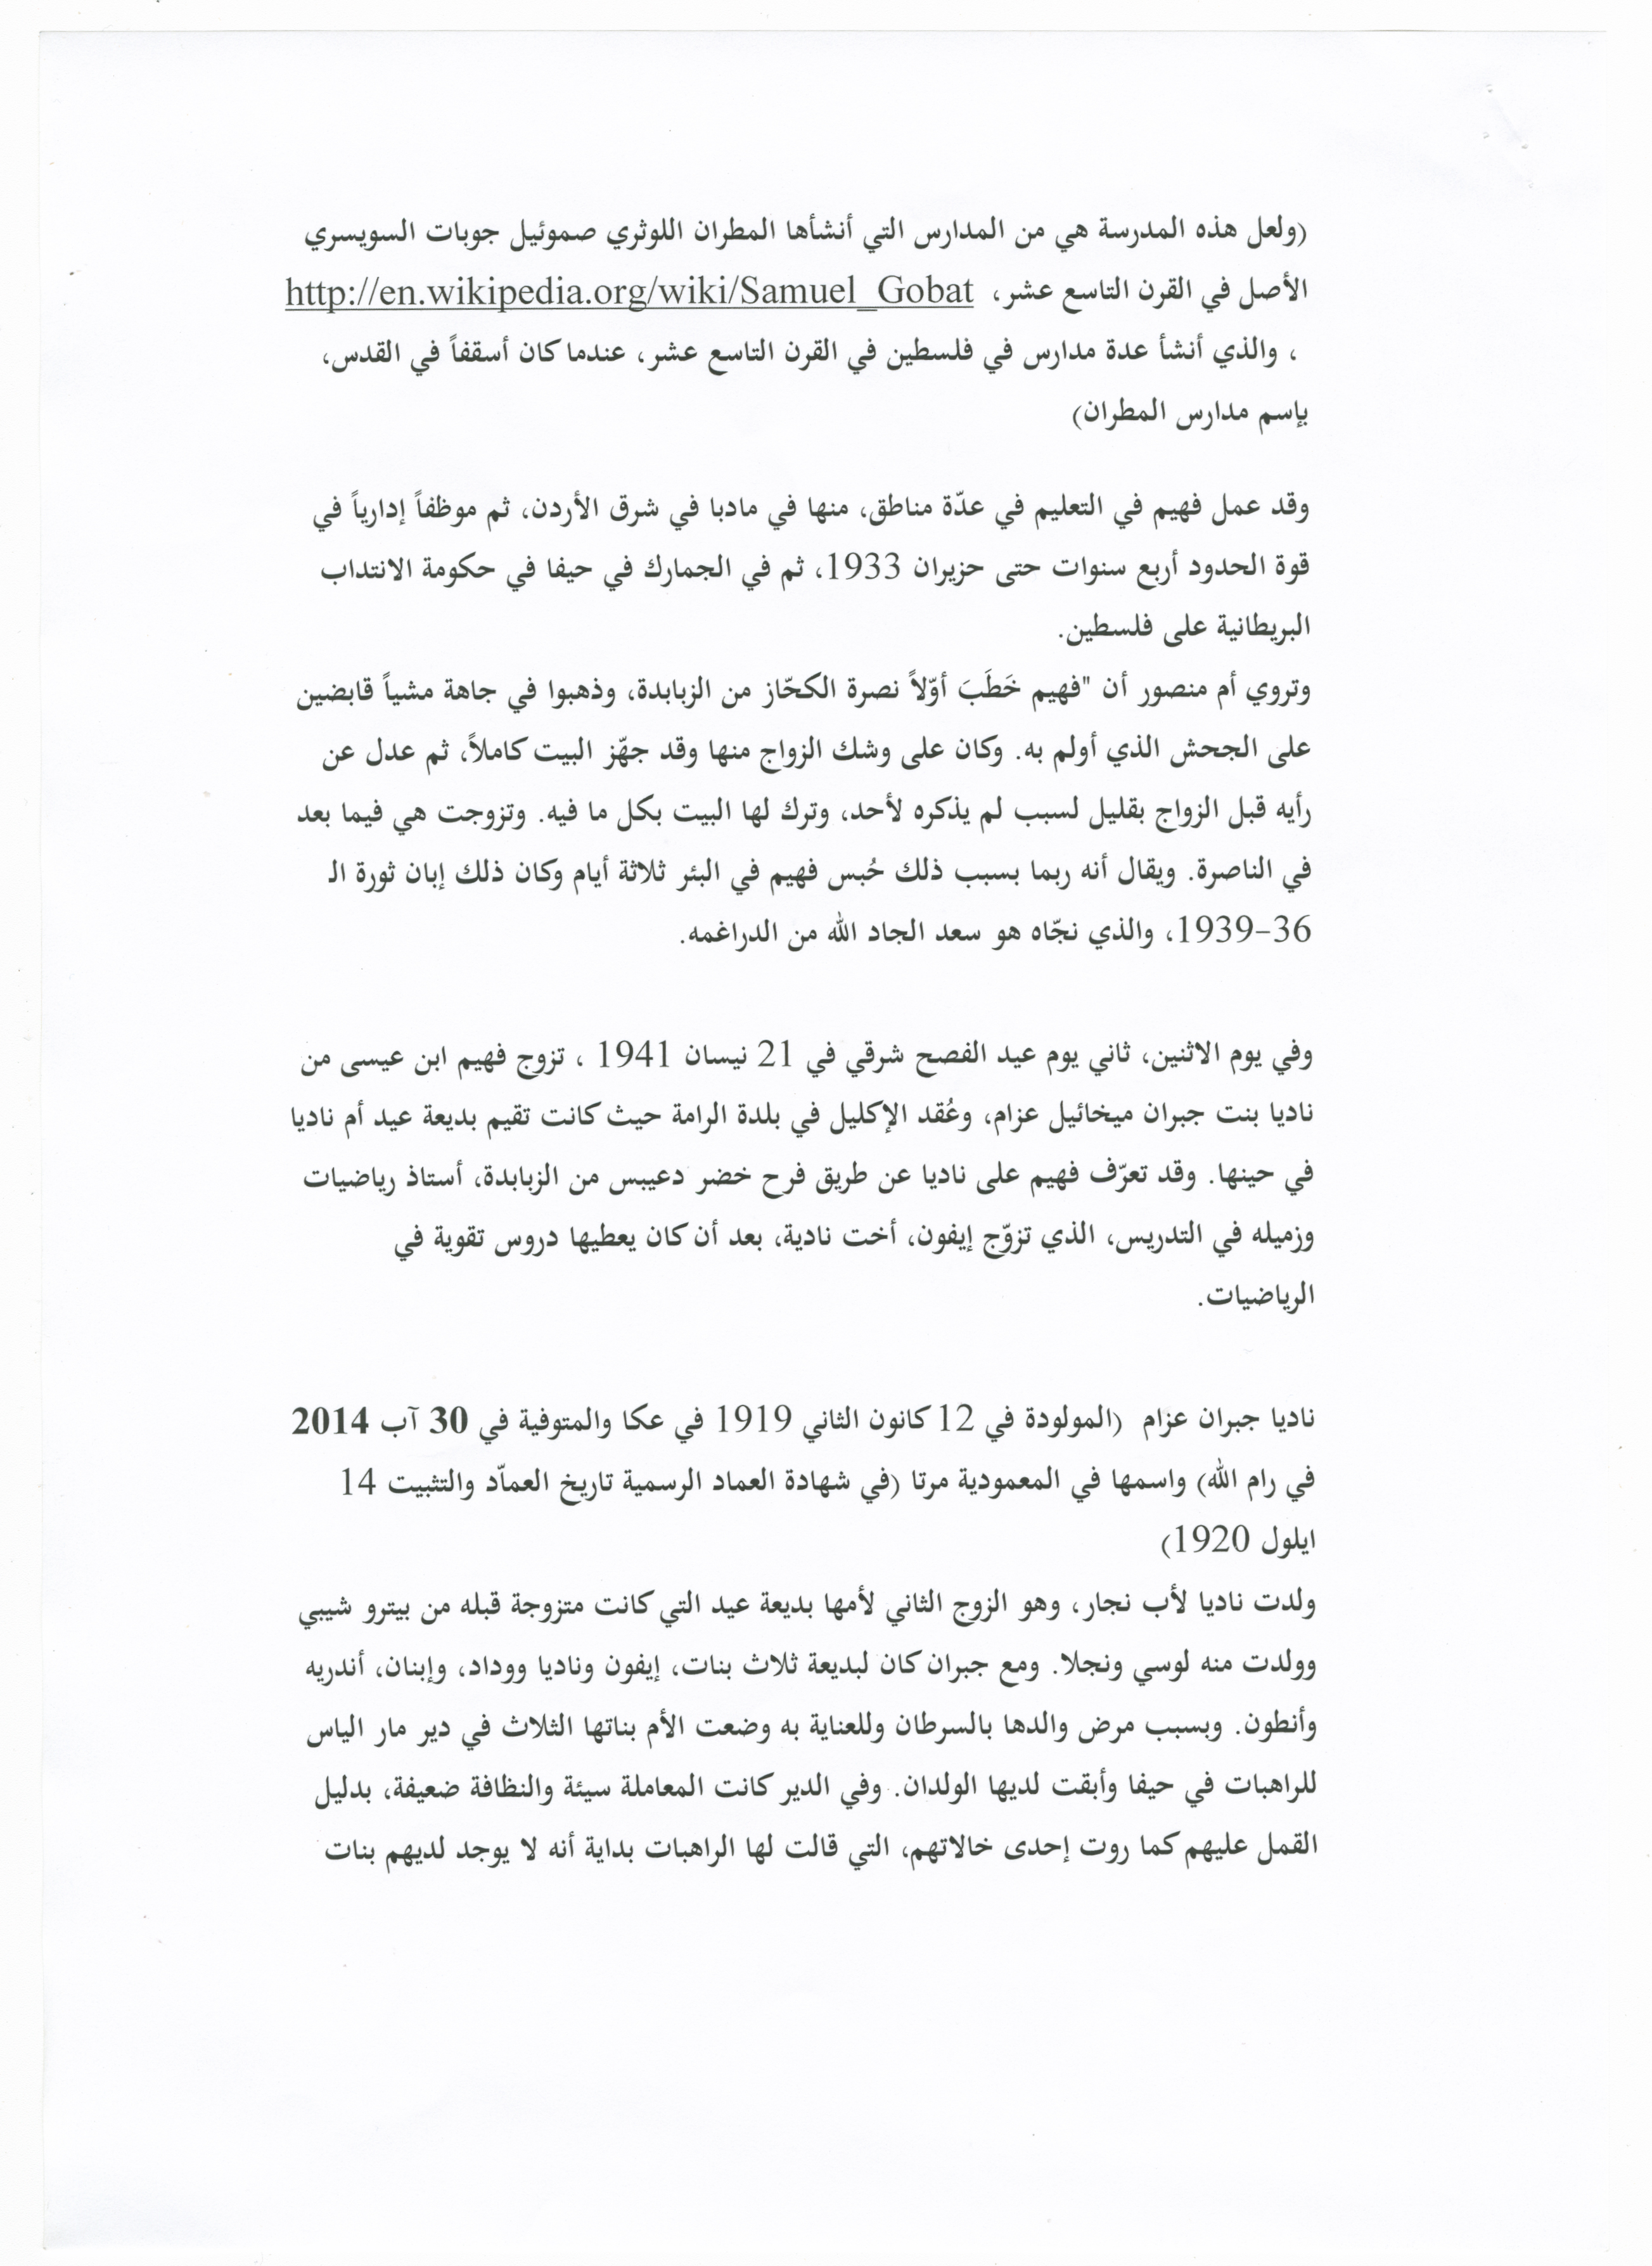 (ولعل هذه المدرسة هي من المدارس التي أنشأها المطران اللوثري صموئيل جوبات السويسري
الأصل في القرن التاسع عشر، http://en.wikipedia.org/wiki/Samuel_Gobat
، والذي أنشأ عدة مدارس في فلسطين في القرن التاسع عشر، عندما كان أسقفاً في القدس،
بإسم مدارس المطران)
وقد عمل فهيم في التعليم في عدّة مناطق، منها في مادبا في شرق الأردن، ثم موظفاً إدارياً في
قوة الحدود أربع سنوات حتى حزيران 1933، ثم في الجمارك في حيفا في حكومة الانتداب
البريطانية على فلسطين.
وتروي أم منصور أن "فهيم خَطَبَ أوّلاً نصرة الكحّاز من الزبابدة، وذهبوا في جاهة مشياً قابضين
على الجحش الذي أولم به. وكان على وشك الزواج منها وقد جهّز البيت كاملاً، ثم عدل عن
رأيه قبل الزواج بقليل لسبب لم يذكره لأحد، وترك لها البيت بكل ما فيه. وتزوجت هي فيما بعد
في الناصرة. ويقال أنه ربما بسبب ذلك حُبس فهيم في البئر ثلاثة أيام وكان ذلك إبان ثورة الـ
36-1939، والذي نجّاه هو سعد الجاد الله من الدراغمه.
وفي يوم الاثنين، ثاني يوم عيد الفصح شرقي في 21 نيسان 1941 ، تزوج فهيم ابن عيسى من
ناديا بنت جبران ميخائيل عزام، وعُقد الإكليل في بلدة الرامة حيث كانت تقيم بديعة عيد أم ناديا
في حينها. وقد تعرّف فهيم على ناديا عن طريق فرح خضر دعيبس من الزبابدة، أستاذ رياضيات
وزميله في التدريس، الذي تزوّج إيفون، أخت نادية، بعد أن كان يعطيها دروس تقوية في
الرياضيات.
ناديا جبران عزام (المولودة في 12 كانون الثاني 1919 في عكا والمتوفية في 30 آب 2014
في رام الله) واسمها في المعمودية مرتا (في شهادة العماد الرسمية تاريخ العماّد والتثبيت 14
ايلول 1920)
ولدت ناديا لأب نجار، وهو الزوج الثاني لأمها بديعة عيد التي كانت متزوجة قبله من بيترو شيبي
وولدت منه لوسي ونجلا. ومع جبران كان لبديعة ثلاث بنات، إيفون وناديا ووداد، وإبنان، أندريه
وأنطون. وبسبب مرض والدها بالسرطان وللعناية به وضعت الأم بناتها الثلاث في دير مار الياس
للراهبات في حيفا وأبقت لديها الولدان. وفي الدير كانت المعاملة سيئة والنظافة ضعيفة، بدليل
القمل عليهم كما روت إحدى خالاتهم، التي قالت لها الراهبات بداية أنه لا يوجد لديهم بنات